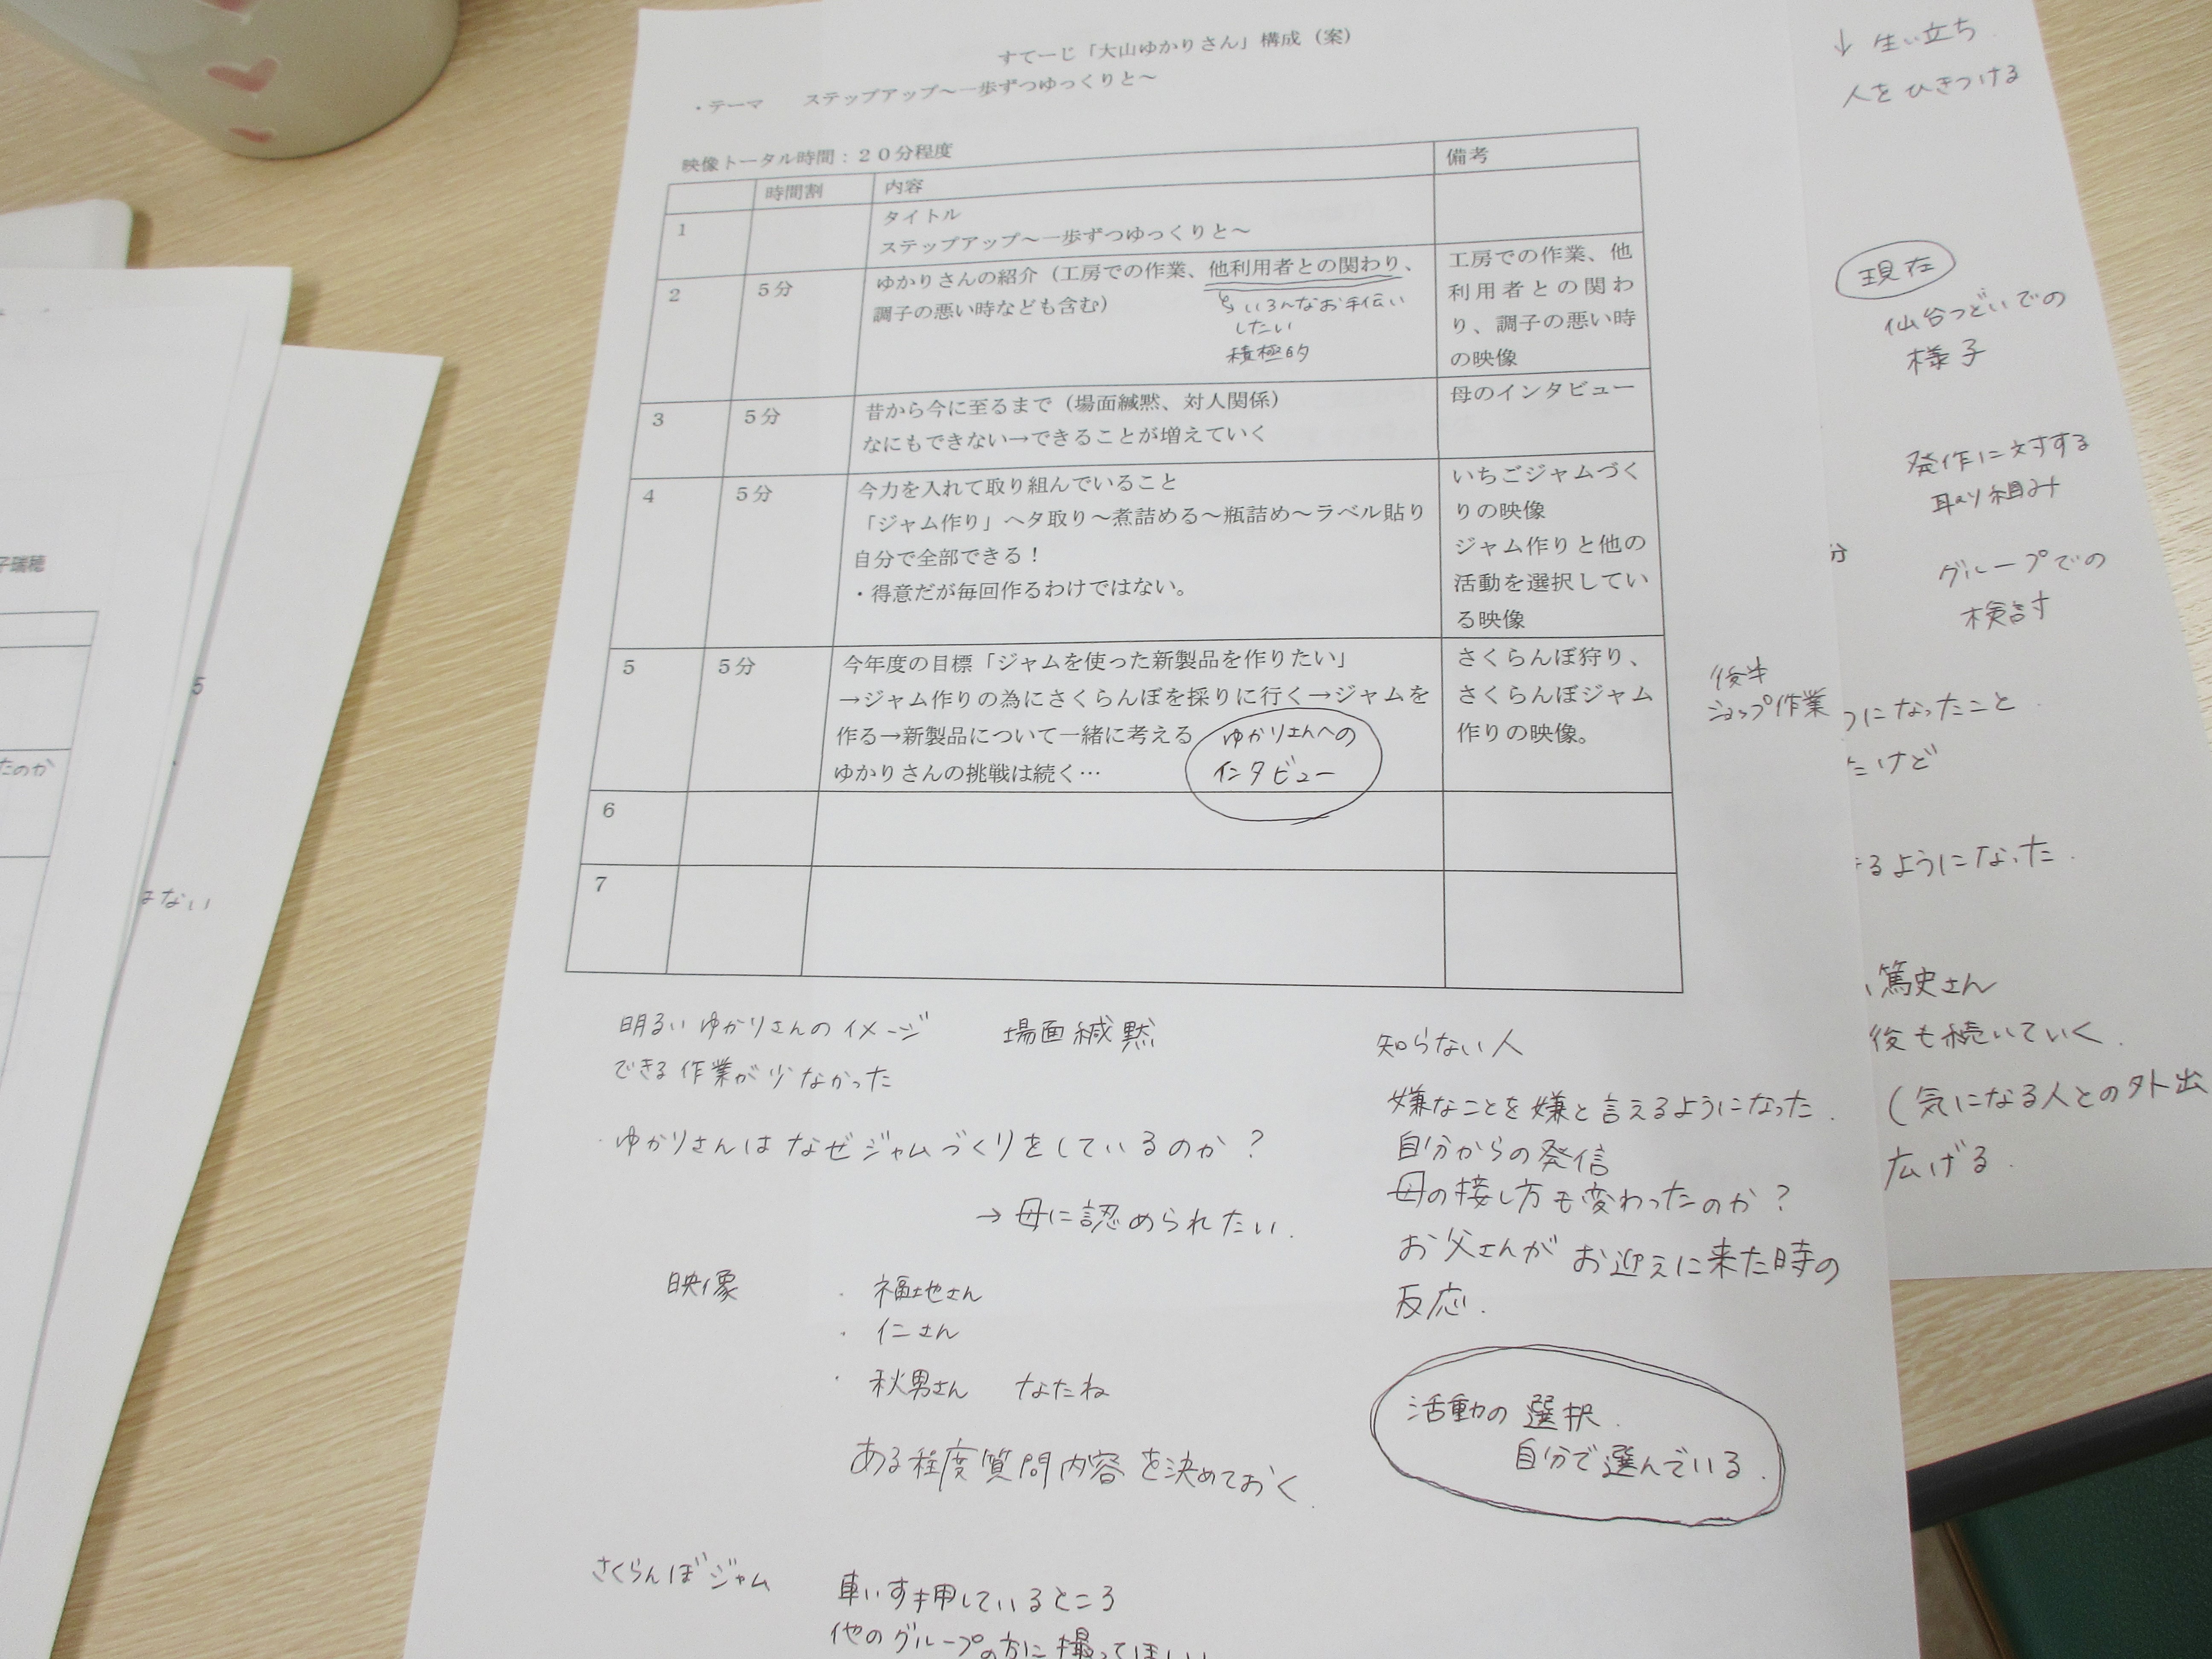 すてーじ「大山ゆかりさん」構成（案）
・テーマ　ステップアップ～一歩ずつゆっくりと～
映像トータル時間：２０分程度
時間割　内容　備考
1　タイトル
ステップアップ～一歩ずつゆっくりと～
2　５分　ゆかりさんの紹介（工房での作業、他利用者との関わり、
調子の悪い時なども含む）
いろんなお手伝い
したい
積極的
工房での作業、他
利用者との関わ
り、調子の悪い時
の映像
3　５分　昔から今に至るまで（場面緘黙、対人関係）
なにもできない→できることが増えていく
母のインタビュー
4　５分　今力を入れて取り組んでいること
「ジャム作り」ヘタ取り～煮詰める～瓶詰め～ラベル貼り
自分で全部できる！
・得意だが毎回作るわけではない。
いちごジャムづく
りの映像
ジャム作りと他の
活動を選択してい
る映像
5　５分　今年度の目標「ジャムを使った新製品を作りたい」
→ジャム作りの為にさくらんぼを採りに行く→ジャムを
作る→新製品について一緒に考える
ゆかりさんの挑戦は続く…
ゆかりさんへの
インタビュー
さくらんぼ狩り、
さくらんぼジャム
作りの映像。
後半
ショップ作業
6
7
明るいゆかりさんのイメージ
できる作業が少なかった
場面緘黙
・ゆかりさんはなぜジャムづくりをしているのか？
→母に認められたい.
映像
・福地さん
・仁さん
・秋男さん　なたね
ある程度質問内容を決めておく.
さくらんぼジャム
車いす押しているところ
他のグループの方に撮ってほしい
知らない人
嫌なことを嫌と言えるようになった.
自分からの発信
母の接し方も変わったのか？
お父さんがお迎えに来た時の
反応.
活動の選択.
自分で選んでいる.
↓ 生い立ち
人をひきつける
現在
仙台つどいでの
様子
発作に対する
取り組み
分
グループでの
検討
うになったこと.
たけど
きるようになった.
篤史さん
後も続いていく.
(気になる人との外出
広げる.
子瑞穂
たのか
5
はない